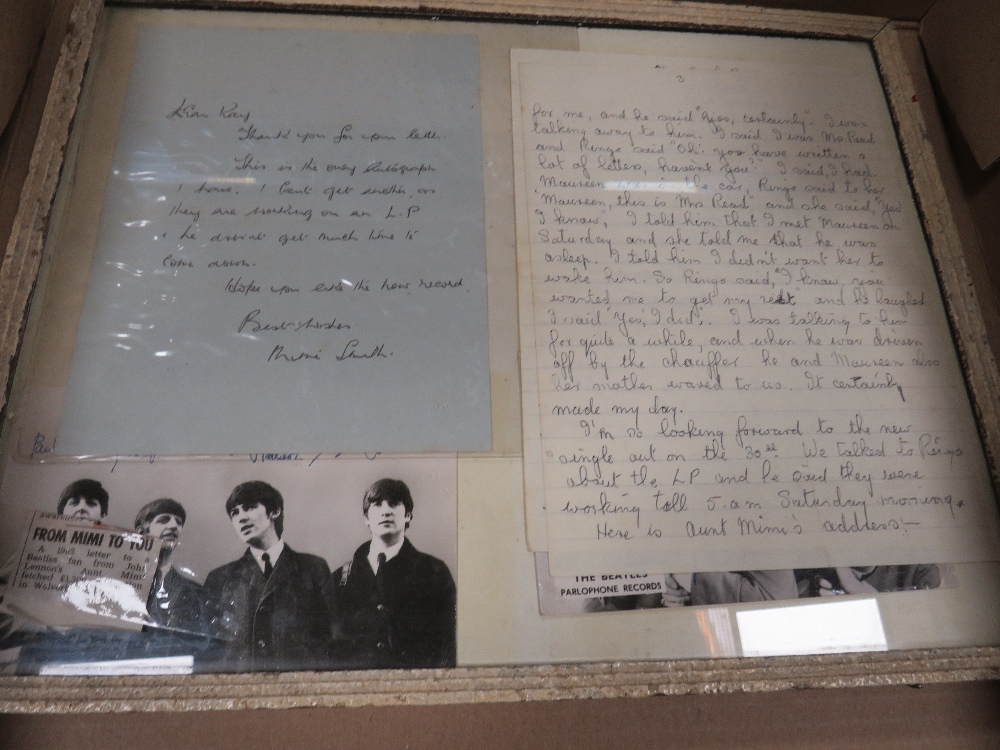 Dear Ray
Thank you for your letter.
This is the only Autograph
I have. I Can't get another as
they are working on an L.P
& he doesn't get much time to
Come down.
Hope you like the new record.
Best wishes
Mimi Smith.
FROM MIMI TO YOU
A letter to a
Beatles fan from John
Lennon's Aunt Mimi
fetched
in
3
for me, and he said "yes, certainly". I was
talking away to him. I said I was Mrs Read
and Ringo said "Oh! you have written a
lot of letters, haven't you". I said, I had.
Maureen the car, Ringo said to her
"Maureen, this is Mrs Read" and she said, "Yes
I know", I told him that I met Maureen on
Saturday and she told me that he was
asleep. I told him I didn't want her to
wake him. So Ringo said, "I know, you
wanted me to get my rest" and he laughed
I said "Yes, I did". I was talking to him
for quite a while, and when he was driven
off by the chauffer he and Maureen also
her mother waved to us. It certainly
made my day.
I'm so looking forward to the new
single out on the 30th We talked to Ringo
about the LP and he said they were
working till 5.am Saturday morning.
Here is Aunt Mimi's address:-
THE BEATLES
PARLOPHONE RECORDS